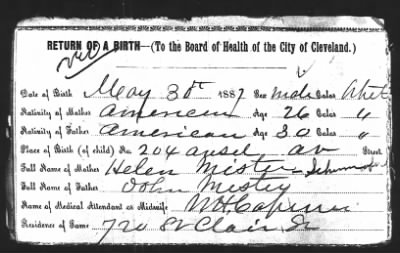 RETURN OF A BIRTH—(To the Board of Health of the City of Cleveland.)
Date of Birth May 30th 1887 Sex Male Color Whit
Nativity of Mother American Age 26 Color "
Nativity of Father American Age 30 Color "
Place of Birth (of child) No. 204 ansel av Street
Full Name of Mother Helen Mister
Full Name of Father John Mister
Name of Medical Attendant or Midwife
Residence of Same 720 St Clair St